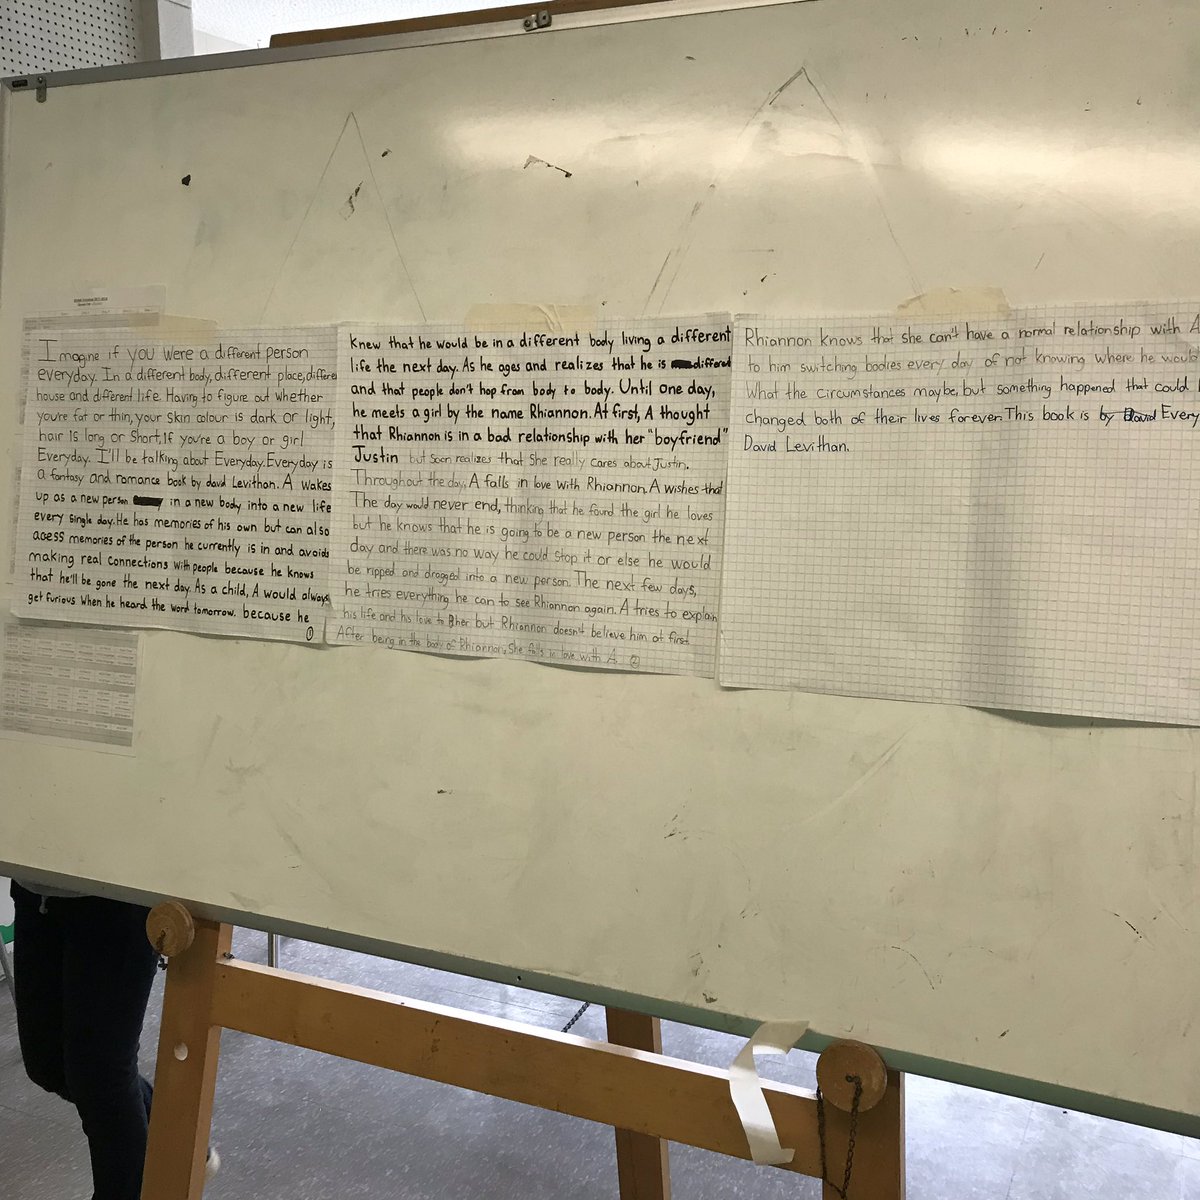 Imagine if you were a different person
everyday. In a different body, different place, differe
house and different life. Having to figure out whether
you're fat or thin, your skin colour is dark or light,
hair is long or short, If you're a boy or girl
Everyday. I'll be talking about Everyday. Everyday is
a fantasy and romance book by david Levithan. A wakes
up as a new person in a new body into a new life
every single day. He has memories of his own but can also
acess memories of the person he currently is in and avoids
making real connections with people because he knows
that he'll be gone the next day. As a child, A would always
get furious when he heard the word tomorrow. because he
1
knew that he would be in a different body living a different
life the next day. As he ages and realizes that he is different
and that people don't hop from body to body. Until one day,
he meets a girl by the name Rhiannon. At first, A thought
that Rhiannon is in a bad relationship with her "boyfriend"
Justin but soon realizes that she really cares about Justin.
Throughout the day, A falls in love with Rhiannon. A wishes that
The day would never end, thinking that he found the girl he loves
but he knows that he is going to be a new person the next
day and there was no way he could stop it or else he would
be ripped and dragged into a new person. The next few days,
he tries everything he can to see Rhiannon again. A tries to explain
his life and his love to her but Rhiannon doesn't believe him at first.
After being in the body of Rhiannon, She falls in love with A.
2
Rhiannon knows that she can't have a normal relationship with A
to him switching bodies every day of not knowing where he would
What the circumstances maybe, but something happened that could
changed both of their lives forever. This book is by David Every
David Levithan.